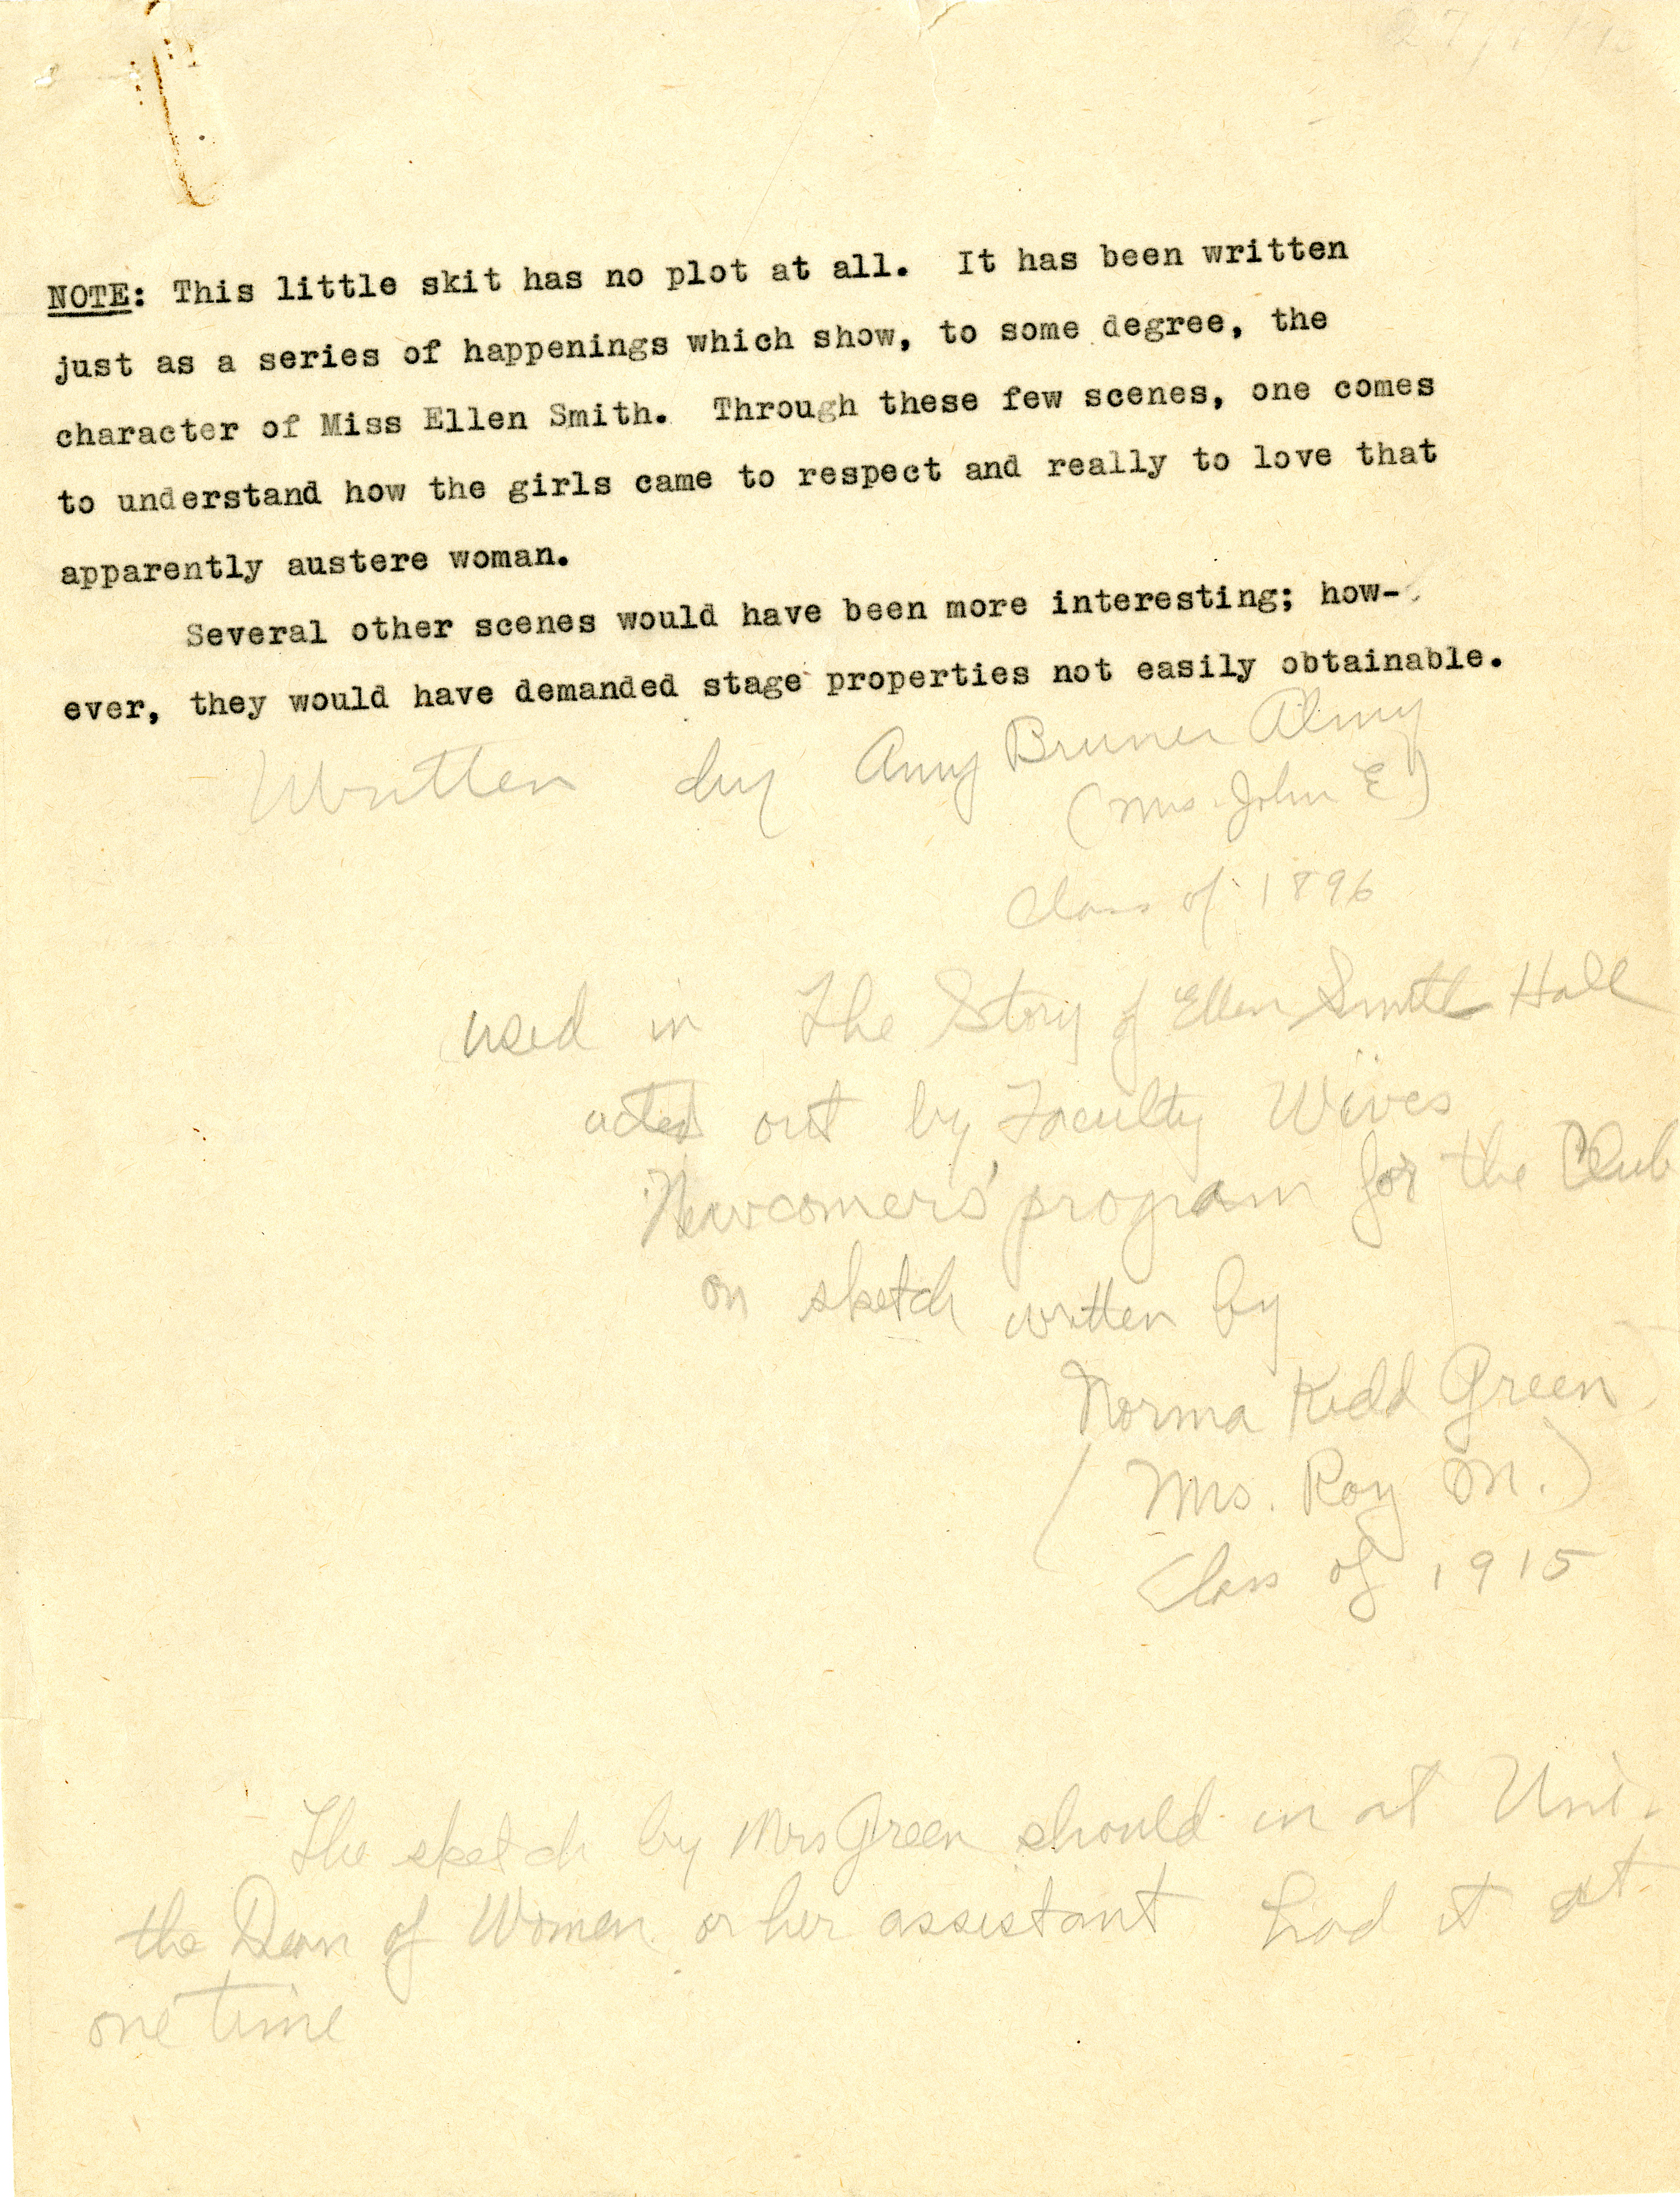 NOTE: This little skit has no plot at all. It has been written
just as a series of happenings which show, to some degree, the
character of Miss Ellen Smith. Through these few scenes, one comes
to understand how the girls came to respect and really to love that
apparently austere woman.
Several other scenes would have been more interesting; how-
ever, they would have demanded stage properties not easily obtainable.
Written by Amy Bruner Almy
(Mrs. John E)
Class of 1896
used in The Story of Ellen Smith Hall
acted out by Faculty Wives
Newcomers' program for the Club
on sketch written by
Norma Kidd Green
(Mrs. Roy M.)
Class of 1915
The sketch by Mrs Green should in at Uni.
the Dean of Women or her assistant had it at
one time